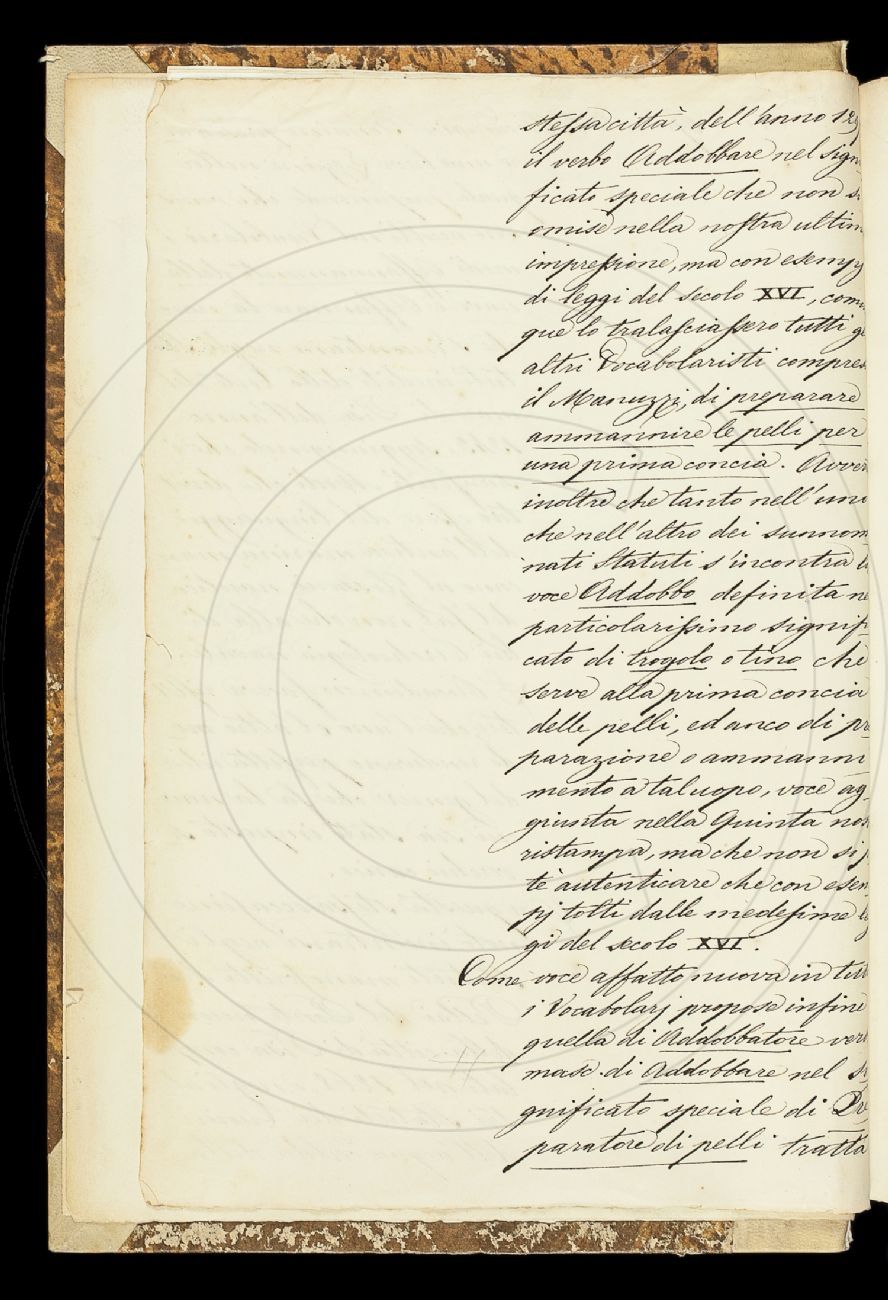 stessa città, dell'anno 129
il verbo Addobbare nel sign
ficato speciale che non s
omise nella nostra ultim
impressione, ma con esempj
di leggi del secolo XVI, com
que lo tralasciassero tutti g
altri Vocabolaristi compres
il Manuzzi, di preparare
ammannire le pelli per
una prima concia. Avver
inoltre che tanto nell'uno
che nell'altro dei sunnom
nati Statuti s'incontra l
voce Addobbo definita ne
particolarissimo signifi
cato di trogolo o tino che
serve alla prima concia
delle pelli, ed anco di pre
parazione o ammanni
mento a tal uopo, voce ag
giunta nella Quinta nos
ristampa, ma che non si p
tè autenticare che con esem
pj tolti dalle medesime l
gi del secolo XVI.
Come voce affatto nuova in tut
i Vocabolarj propose infine
quella di Addobbatore verb
masc. di Addobbare nel si
gnificato speciale di Pre
paratore di pelli tratta